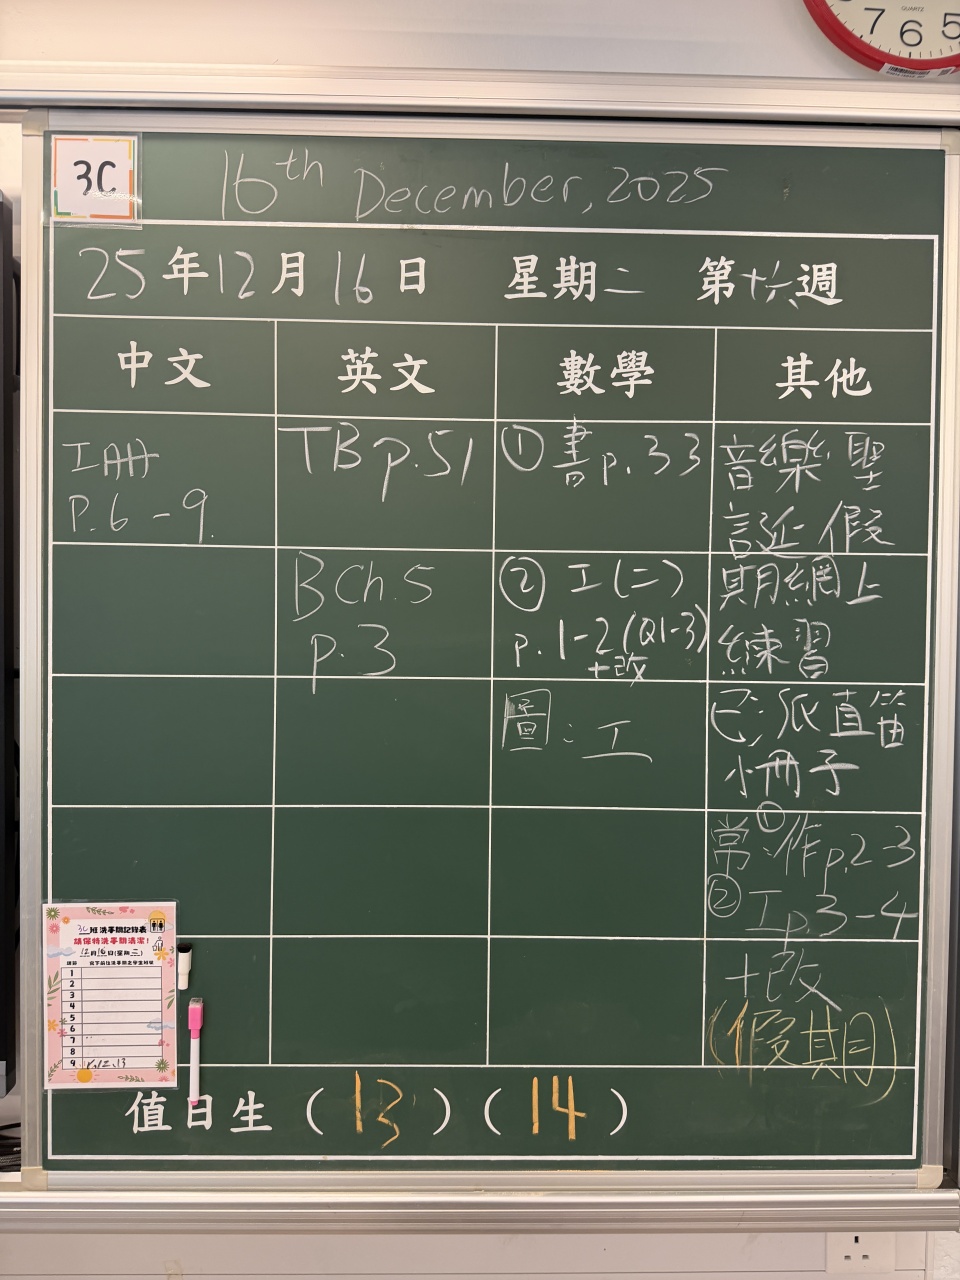 7 6 5
QUARTZ
3C
16th December, 2025
25年12月16日 星期二 第十六週
中文 英文 數學 其他
IAH
P.6-9.
TB p.51
BCh.5
p.3
① 書p.33
② 工(二)
p.1-2(Q1-3)
+改
圖：工
音樂 聖
誕 假
期網上
練習
已派直笛
小冊子
常：①作p.2-3
② 工p3-4
+改
(假期)
3C班洗手間記錄表
請保持洗手間清潔！
12月16日(星期二)
1
2
3
4
5
6
7
8
9
值日生(13)(14)